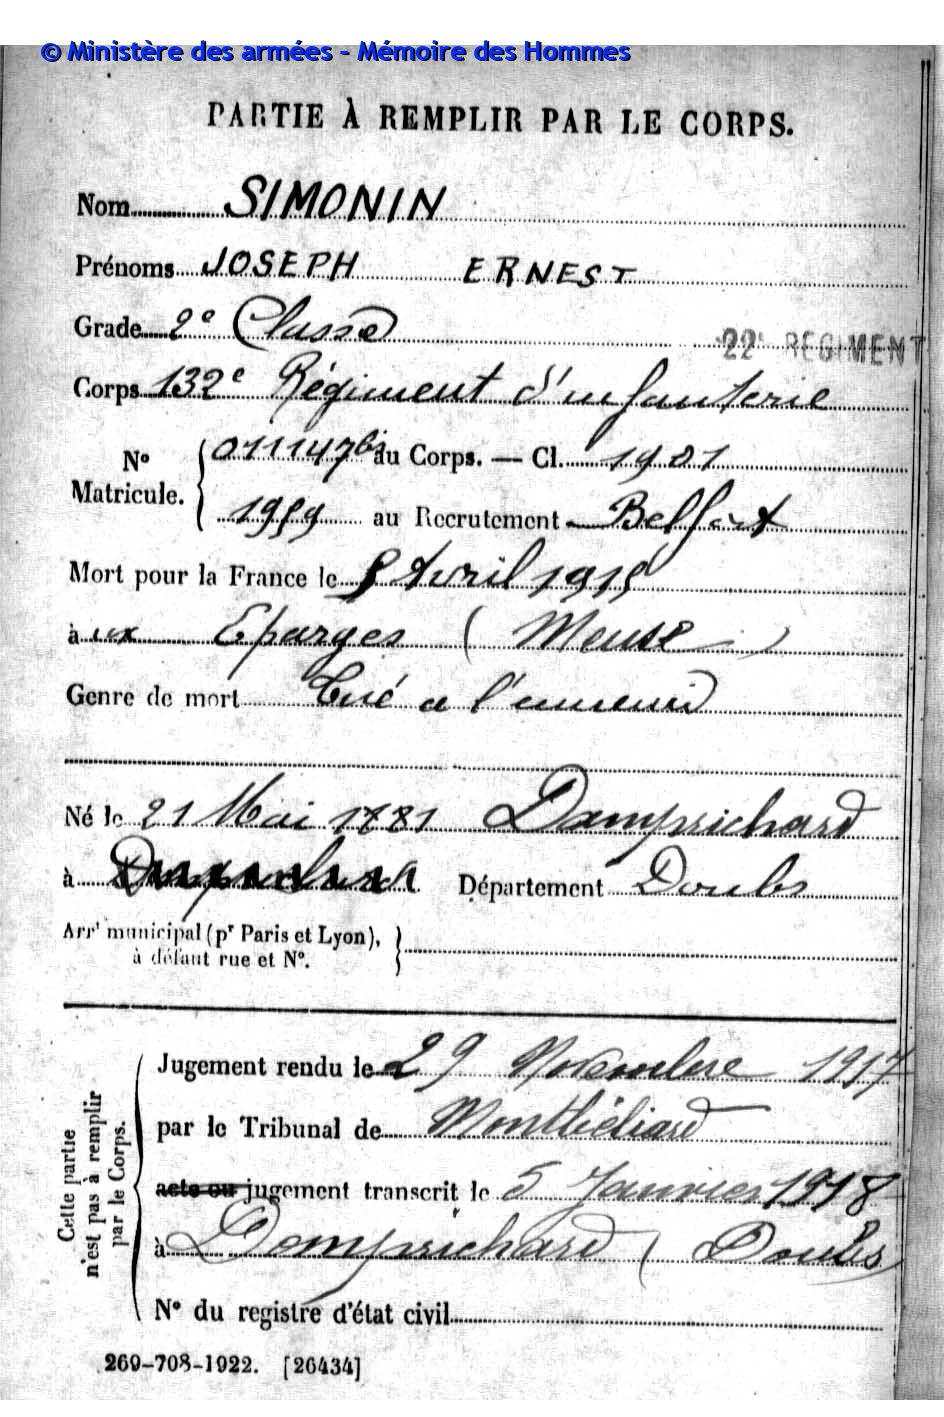 © Ministère des armées - Mémoire des Hommes
PARTIE À REMPLIR PAR LE CORPS.
Nom SIMONIN
Prénoms JOSEPH ERNEST
Grade 2e Classe
22e REGIMENT
Corps 132e Régiment d'infanterie
N° Matricule. 011147bis au Corps. — Cl. 1901
1959 au Recrutement Belfort
Mort pour la France le 5 Avril 1915
à ux Eparges (Meuse)
Genre de mort Tué a l'ennemi
Né le 21 Mai 1881 Damprichard
à Département Doubs
Arrt municipal (pr Paris et Lyon),
à défaut rue et N°.
Cette partie
n'est pas à remplir
par le Corps.
Jugement rendu le 29 Novembre 1917
par le Tribunal de Montbéliard
acte ou jugement transcrit le 5 Janvier 1918
à Damprichard (Doubs
N° du registre d'état civil
269-708-1922. [26434]